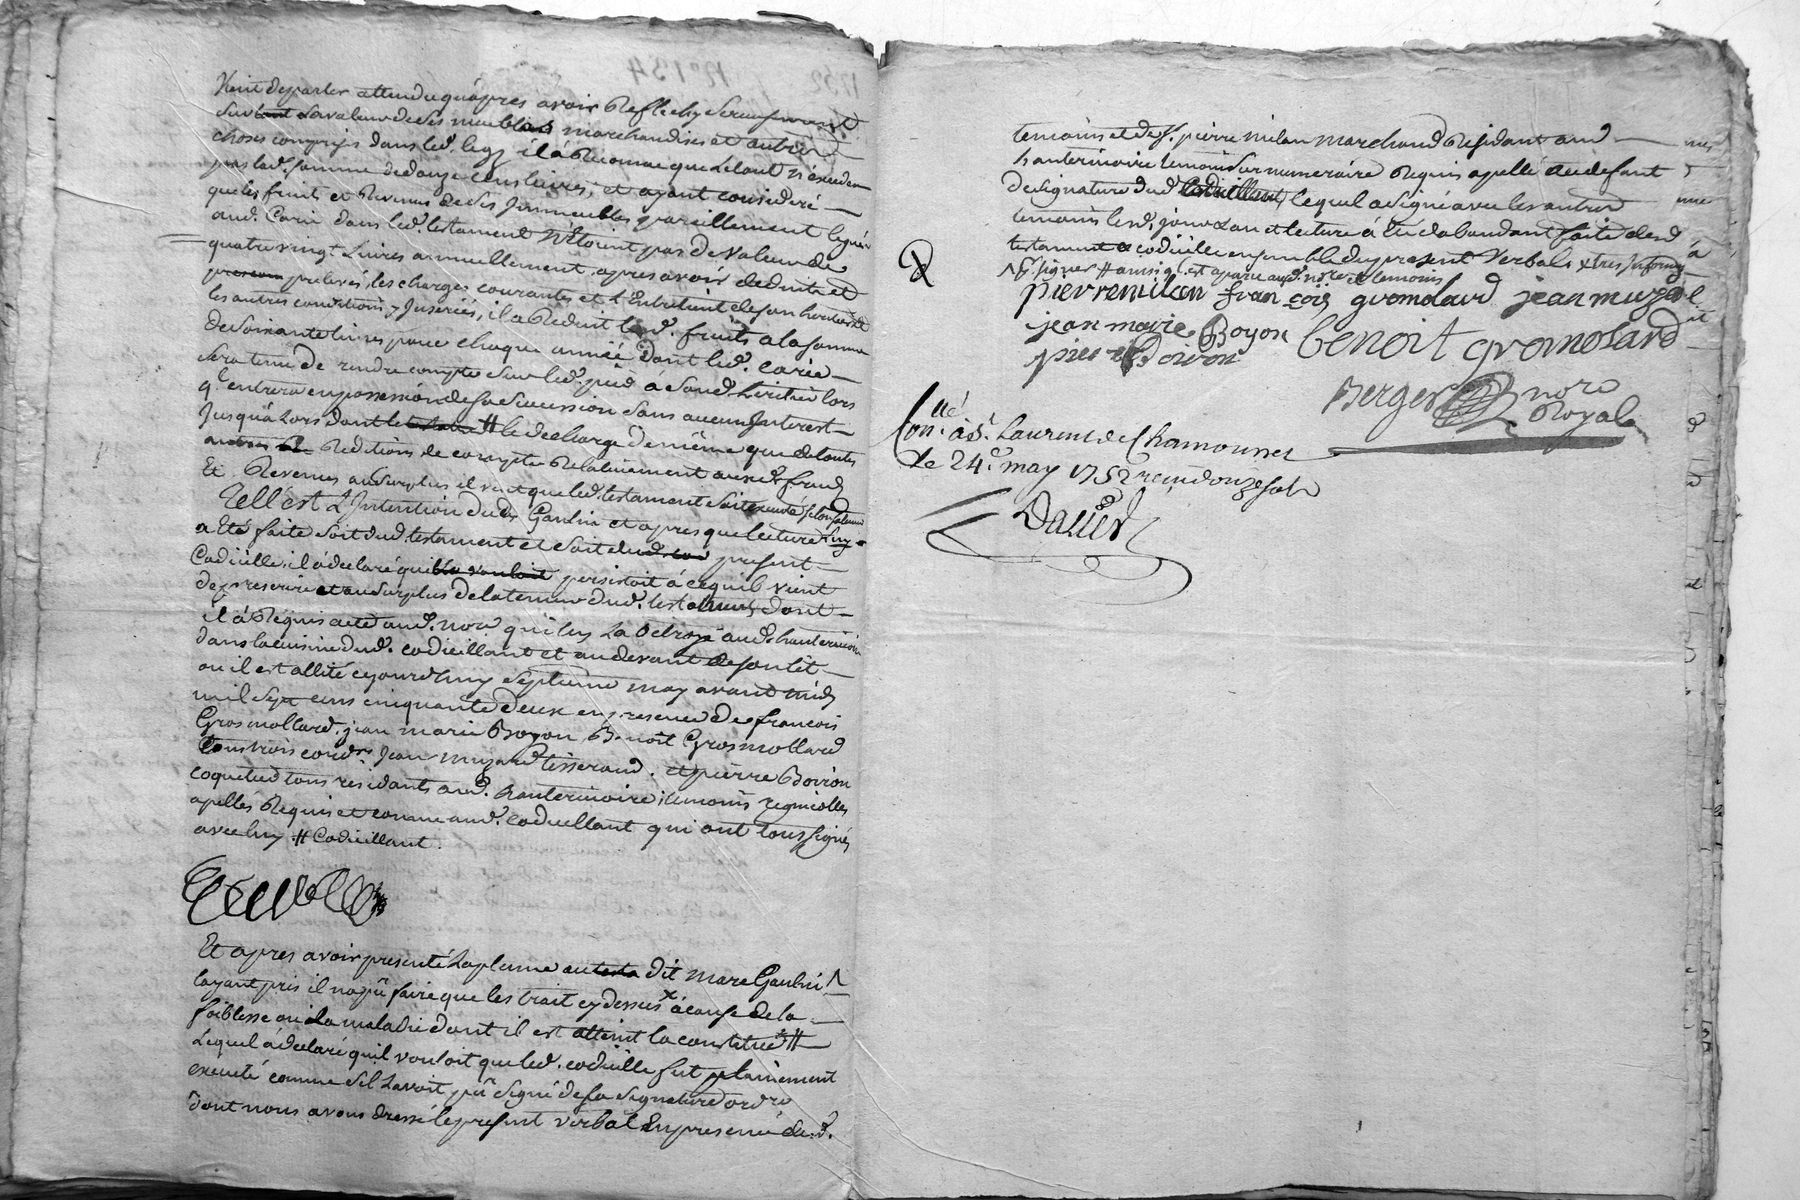 vient de parler attendu qu'apres avoir Reflechy serieusement
sur la valeur de ses meubles marchandises et autres
choses comprises dans led. legz il a Reconnu que le tout n'exceden
pas lad. somme de douze cens livres, et ayant consideré
que les fruit et Revenus de ses Immeubles pareillement legués
aud. Carie dans led. testament N'Etoient pas de valeur de
quatre vingt Livres annuellement, apres avoir deduit et
prelevés les charges courantes et L'Entretient de son heritier
les autres conditions y Inserées, il a Reduit lesd. fruits a la somme
de soixante livres pour chaque année dont led. Carie
sera tenu de rendre compte sur led. pied à sond. heritier lors
q'l entrera en possession de sa succession sans aucun Interest
Jusqu'a Lors dont le # le decharge de même que de toutes
Redditions de compte Relativement auxd. fruits
Et Revenus au surplus il veut que led. testament soit executé selon sa teneur
Tell'est L'Intention dud. Sr Gaulin et apres que lecture luy a
a Eté faite soit dud. testament et soit du present
Codicille, il a declaré qu'il persistoit à ce qu'il vient
de prescrire et au surplus de la teneur dud. testament dont
il à Requis acte aud. Nore qui luy La Octroyé aud. hauterivoire
dans la cuisine dud. codicillant et au devant de son lit
ou il est allité ce jourd'huy septieme may avant midy
mil sept cens cinquante deux en presence de francois
Grosmollard, jean marie Boyon, Benoit Grosmollard
tous trois cordrs. Jean muzard tisserand, et pierre Boiron
coquetud tous residants aud. hauterivoire, temoins regnicolles
apellés Requis et connus aud. codicillant qui ont tous signés
avec luy # Codicillant.
Et apres avoir presenté la plume au dit marc Gaulin Λ
layant pris il na pû faire que les trait cy dessus x à cause de la
foiblesse ou la maladie dont il est atteint la constitué #
Lequel à declaré quil vouloit que led. codicille fut plainement
executé comme s'il l'avoit pû signé de sa signature ordre
dont nous avons dressé le present verbal En presence desd.
temoins et de Sr. pierre milan marchand Residant aud
hauterivoire temoin surnumeraire Requis apellé au defaut
de signature dud. codicillant, lequel a signé avec les autres
temoins lesd. jour & an et lecture à Eté dabondant faite desd
testament & codicille ensemble du present Verbal x
pierre milan françois gromolard jean muzard
jean marie Boyon Benoit gromolard
pierre Boiron
Berger nore
Royal
Conlé. à St. Laurent de Chamousset
le 24e. may 1752 reçu douze sols
Dacier